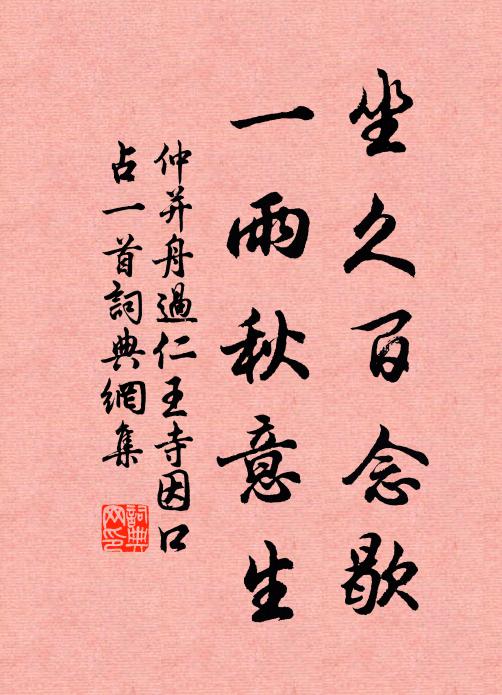 坐久百念歇
一雨秋意生
仲并舟過仁王寺因口
占一首詞典網集
詞典
网印